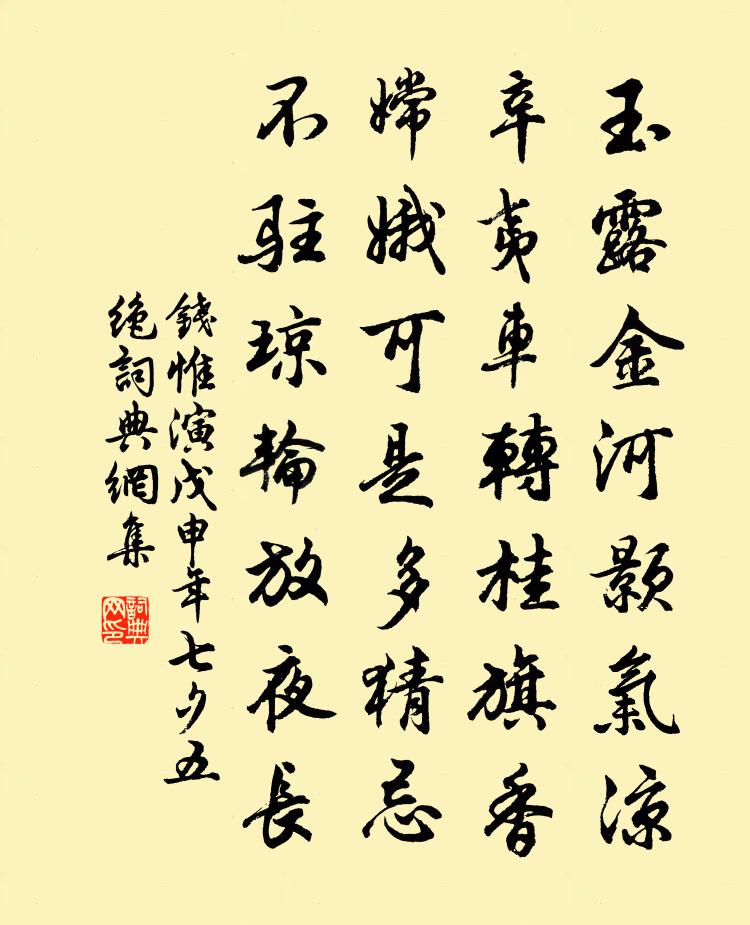 玉露金河顥氣涼
辛夷車轉桂旗香
嫦娥可是多猜忌
不駐瓊輪放夜長
錢惟演戊申年七夕五
絶詞典網集
詞典
网印